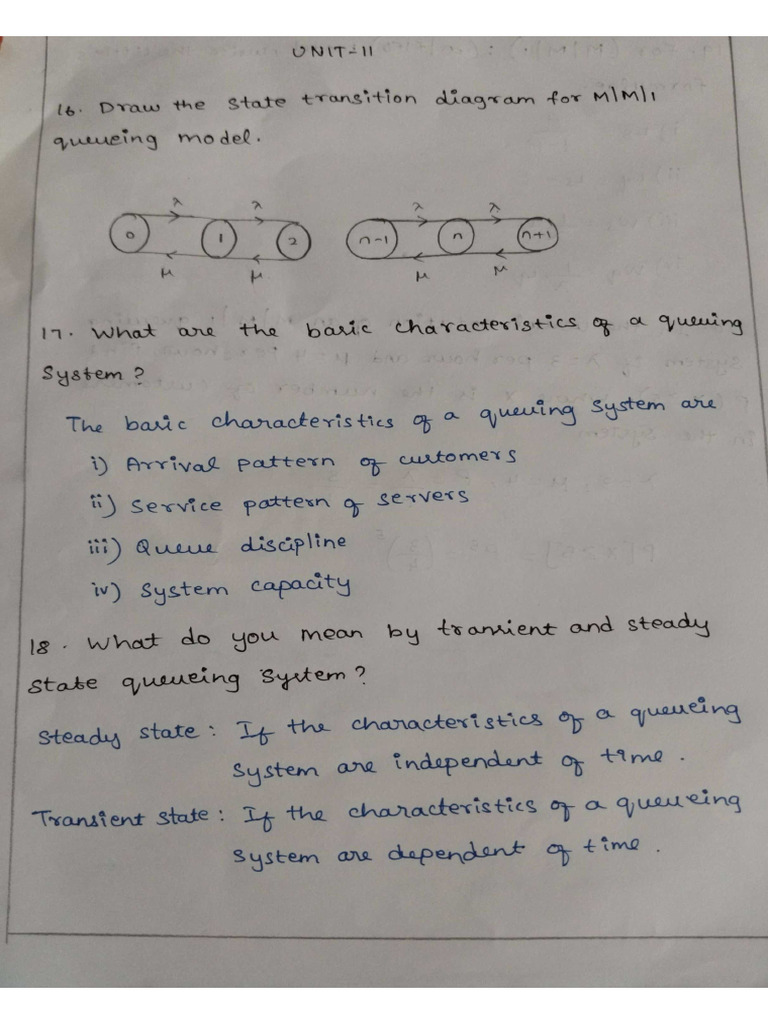 UNIT-II
16. Draw the state transition diagram for M|M|1
queueing model.
λ λ λ λ
0 1 2 n-1 n n+1
μ μ μ μ
17. What are the basic characteristics of a queuing
System?
The basic characteristics of a queuing system are
i) Arrival pattern of customers
ii) Service pattern of servers
iii) Queue discipline
iv) System capacity
18. What do you mean by transient and steady
state queueing system?
Steady state: If the characteristics of a queueing
system are independent of time.
Transient state: If the characteristics of a queueing
system are dependent of time.